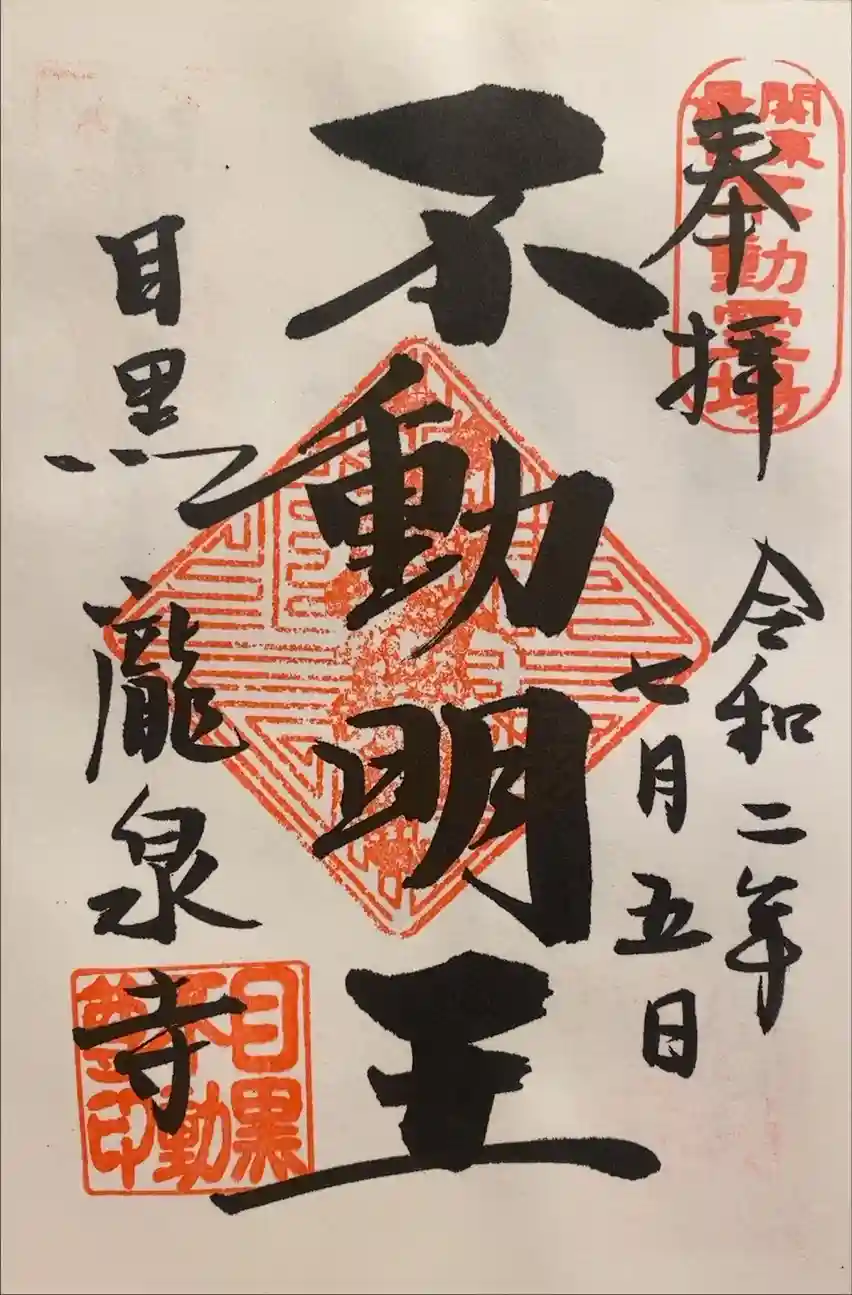 奉拝
関東
最古
不動霊場
令和二年
七月五日
不動明王
目黒
瀧泉寺
目黒
不動
尊印